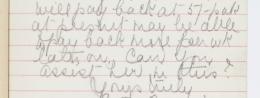 will pay back at 5/- per wk
at present may be able
to pay back more per wk
later on, Can you
assist her in this?
Yrs truly